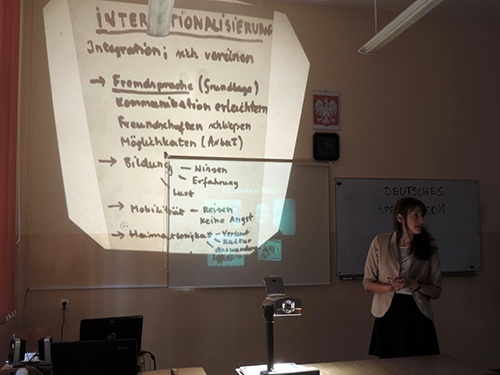 INTERNATIONALISIERUNG
Integration; sich vereinen
→ Fremdsprache (Grundlage)
Kommunikation erleichtern
Freundschaften schliessen
Möglichkeiten (Arbeit)
→ Bildung – Wissen
– Erfahrung
Lust
→ Mobilität – Reisen
Keine Angst
→ Heimatlosigkeit – Verlust
– Kultur
DEUTSCHES